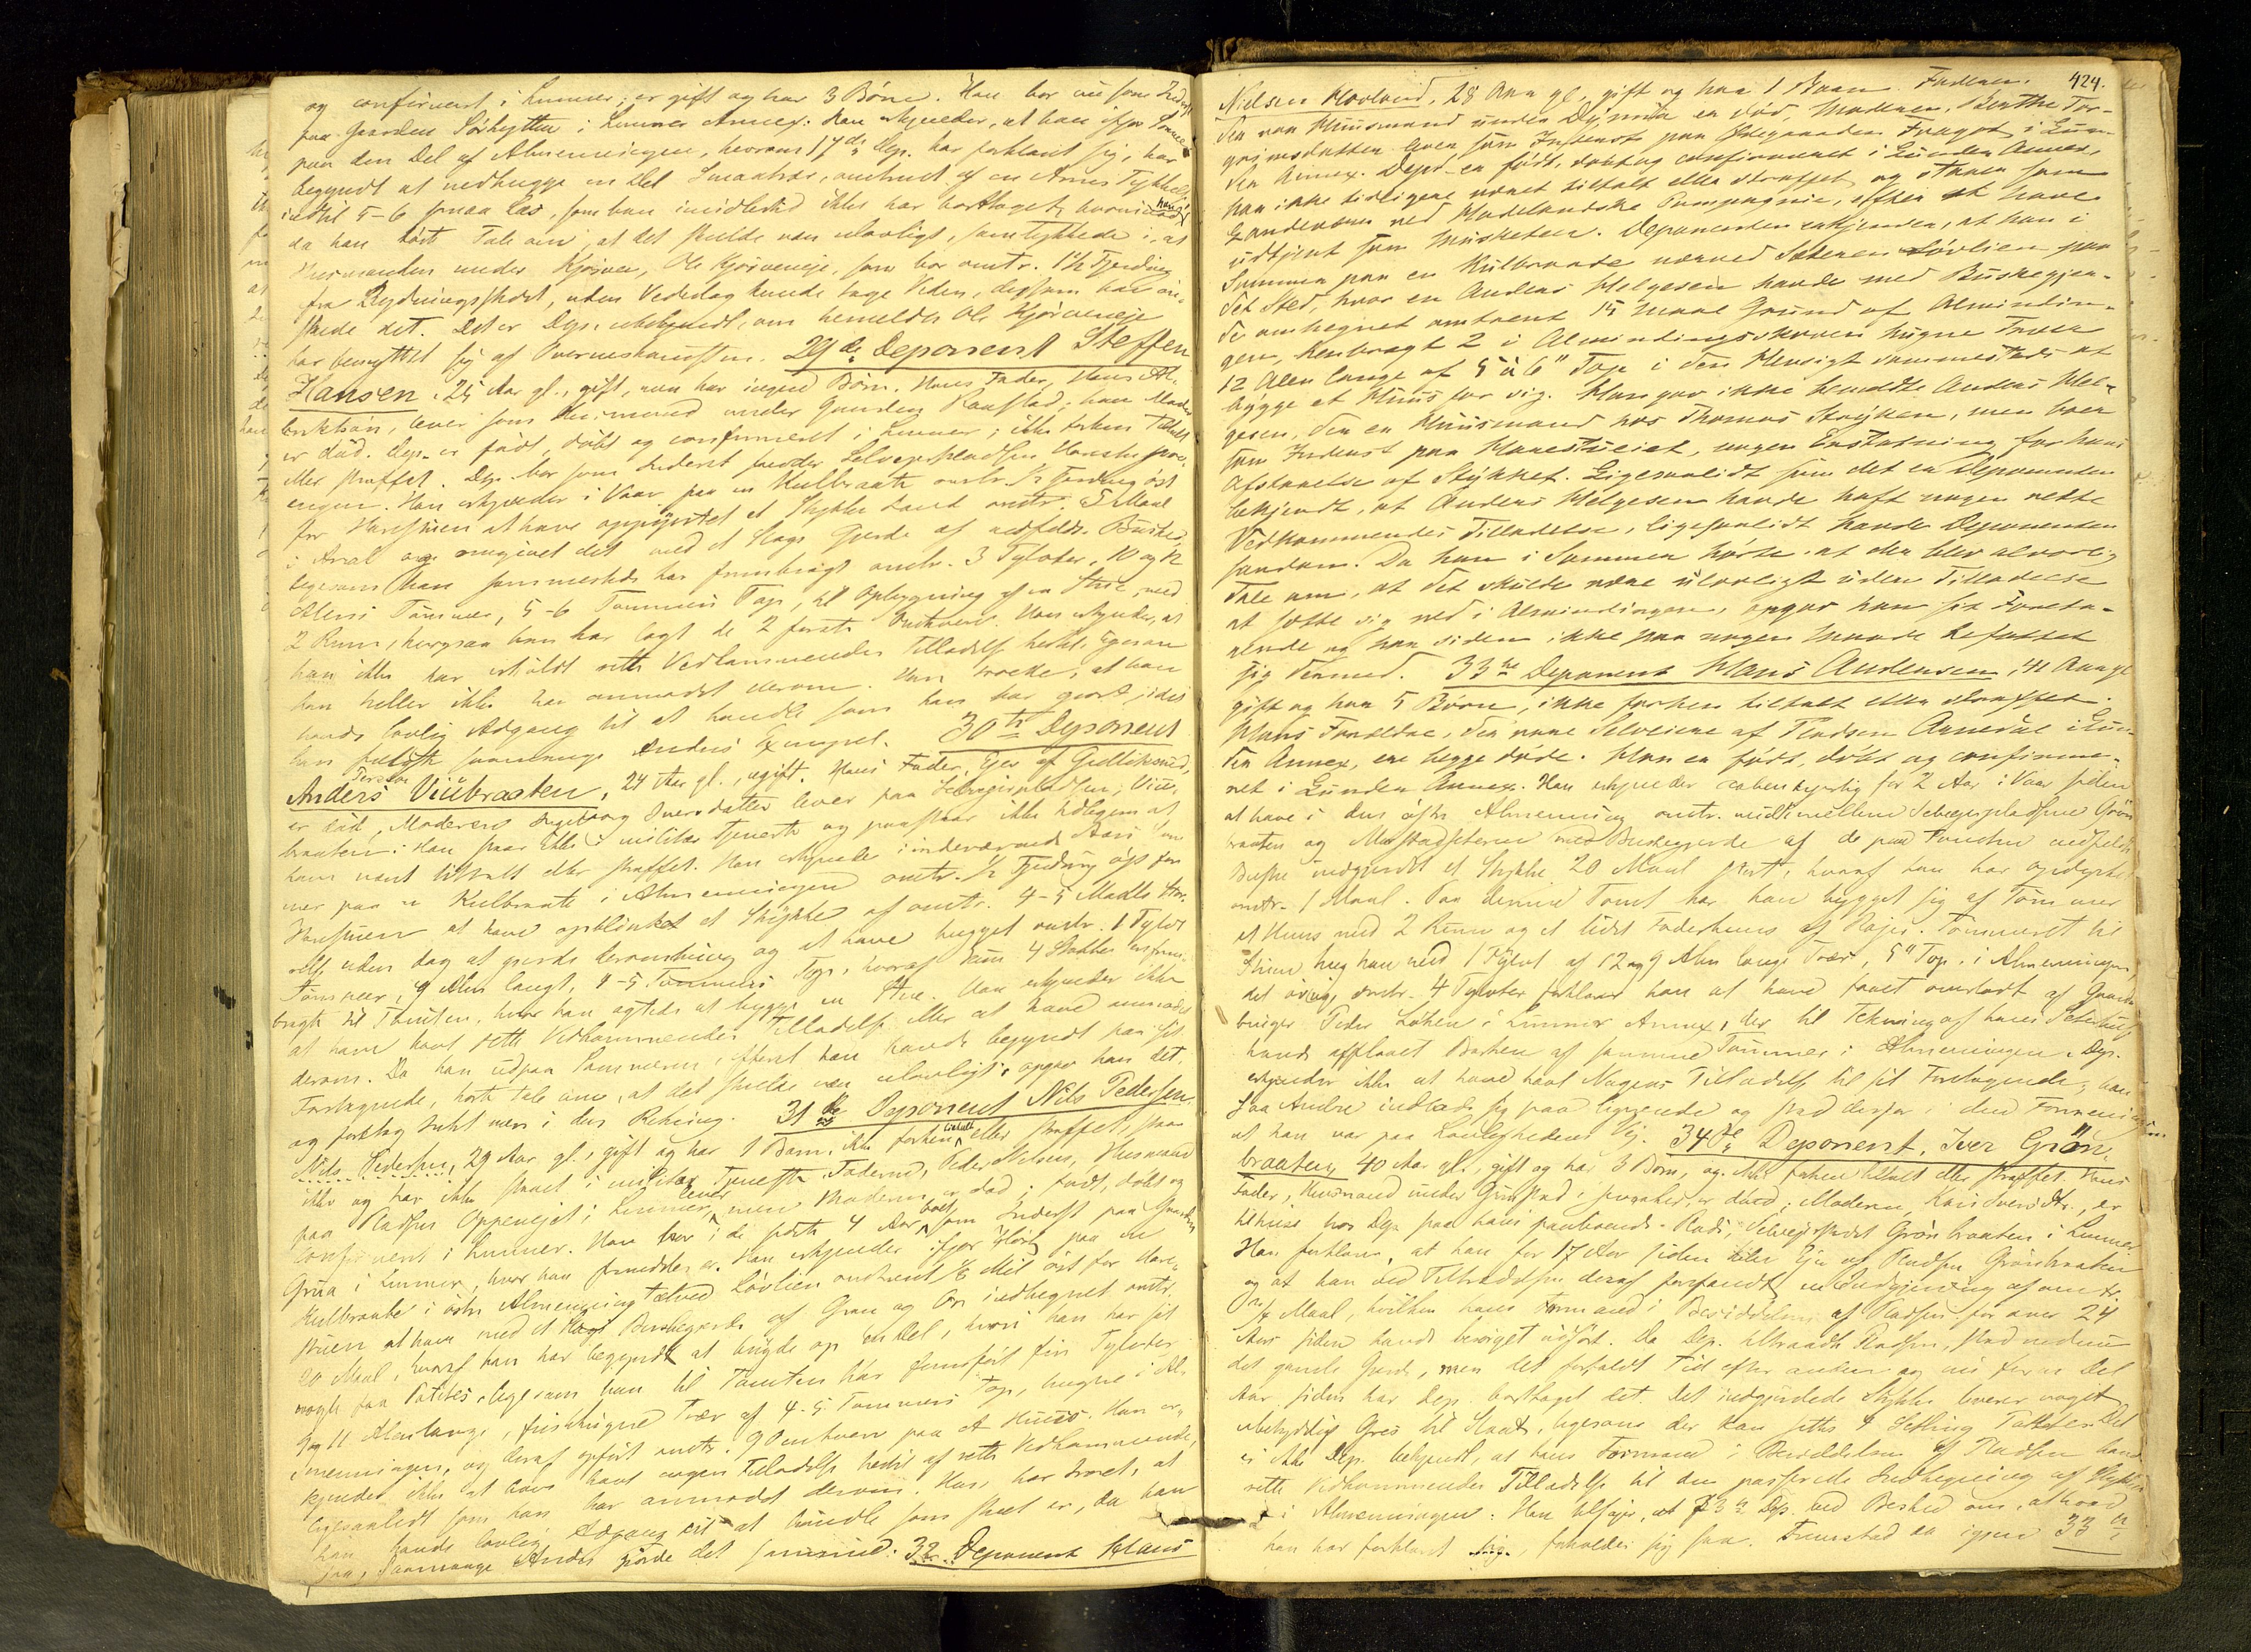 og confirmeret i Lunner; er gift og har 3 Børn. Han bor nu som Inderst
paa Gaarden Sørhytten i Lunner Annex. Han erkjender, at han ifjor Sommer
paa den Del af Almenningen, hvorom 17de Dep. har forklaret sig, har
begyndt at nedhugge en Del Smaatrær, omtrent af en Arms Tykkelse
indtil 5-6 smaa Læs, som han imidlertid ikke har borttaget, hvorimod han,
da han hørte Tale om, at det skulde være ulovligt, samtykkede i, at
Husmanden under Kjørven, Ole Kjørveneje, som bor omtr. 1½ Fjerding
fra Rydningsstedet, uden Vederlag kunde tage Veden, dersom han øn-
skede det. Det er Dep. ubekjendt, om bemeldte Ole Kjørveneje
har benyttet sig af Overenskomsten. 29de Deponent Steffen
Hansen, 25 Aar gl., gift, men har ingen Børn. Hans Fader, Hans
lever som Husmand under Gaarden Raastad; hans Moder
er død. Dep. er født, døbt og confirmeret i Lunner; ikke forhen tiltalt
eller straffet. Dep. bor som Inderst hos
Han erkjender i Vaar paa en Kulbraate omtr. ½ Fjerding øst
for Harestuen at have oppryddet et Stykke Land omtr. 5 Maal
i Areal og omgivet det med et Slags Gjerde af nedfældte Buske,
ligesom han sammesteds har frembragt omtr. 3 Tylvter, 10 og 12
Alens Tømmer, 5-6 Tommers Top, til Opbygning af en Stue med
2 Rum, hvorpaa han har lagt de 2 første Omhverv. Han erkjender, at
han ikke har erholdt rette Vedkommendes Tilladelse hertil, ligesom
han heller ikke har anmodet derom. Han troede, at han
havde lovlig Adgang til at handle som han har gjort, idet
han fulgte saamange Andres Exempel. 30te Deponent
Anders Iversen Viubraaten, 24 Aar gl., ugift. Hans Fader, Ejer af
er død, Moderen Ingeborg Iversdatter lever paa Selvejerpladsen Viu-
braaten. Han staar ikke i militær Tjeneste og paastaar ikke tidligere at
have været tiltalt eller straffet. Han erkjender i indeværende Aars Som-
mer paa en Kulbraate i Almenningen omtr. ½ Fjerding øst for
Harestuen at have opblinket et Stykke af omtr. 4-5 Maals Stør-
relse, uden dog at gjerde deromkring og at have hugget omtr. 1 Tylvt
Tømmer, 9 Alen langt, 4-5 Tommers Top, hvoraf kun 4 Stokke ere frem-
bragte til Tomten, hvor han agtede at bygge en Stue. Han erkjender ikke
at have havt rette Vedkommendes Tilladelse eller at have anmodet
derom. Da han udpaa Sommeren, efterat han havde begyndt paa sit
Foretagende, hørte tale om, at det skulde være ulovligt, opgav han det
og foretog Intet mere i den Retning. 31te Deponent Nils Pedersen.
Nils Pedersen, 29 Aar gl., gift og har 1 Barn, ikke forhen tiltalt eller straffet, staar
ikke og har ikke staaet i militær Tjeneste. Faderen, Peder Nilsen, Husmand
paa Pladsen Oppenejet i Lunner lever, men Moderen er død; født, døbt og
confirmeret i Lunner. Han har i de sidste 4 Aar boet som Inderst paa Gaarden
Grua i Lunner, hvor han fremdeles er. Han erkjender ifjor Høst paa en
Kulbraate i østre Almenning tætved Løvlien omtrent ⅛ Mil øst for Hare-
stuen at have med et Slags Buskegjerde af Gran og Or indhegnet omtr.
20 Maal, hvoraf han har begyndt at bryde op en Del, hvori han har sat
nogle faa Potetes, ligesom han til Tomten har fremført fire Tylvter
9 og 11 Alen lange, friskhugne Trær af 4-5 Tommers Top, hugne i Al-
menningen, og deraf opført omtr. 9 Omhverv paa et Huus. Han er-
kjender ikke at have havt nogen Tilladelse hertil af rette Vedkommende,
ligesaalidt som han har anmodet derom. Han har troet, at
han havde lovlig Adgang til at handle som skeet er, da han
saa, saamange Andre gjorde det samme. 32te Deponent Hans
424.
Nielsen Hovland, 28 Aar gl., gift og har 1 Barn. Faderen,
der var Huusmand under Dynna er død, Moderen, Berthe Tor-
grimsdatter lever som Inderst paa Ødegaarden Fraget i Lun-
der Annex. Depot. er født, døbt og confirmeret i Lunder Annex,
har ikke tidligere været tiltalt eller straffet og staaer som
Landeværn ved Hadelandske Compagnie, efter at have
udtjent som Musketeer. Deponenten erkjender, at han i
Sommer paa en Kulbraate nærved Sæteren Løvlien paa
det Sted, hvor en Anders Helgesen havde med Buskegjer-
de omhegnet omtrent 15 Maal Grund af Almindin-
gen, henbragt 2 i Almindingsskoven hugne Træer
12 Alen lange af 5 à 6" Top i den Hensigt sammesteds at
bygge et Huus for sig. Han gav ikke bemeldte Anders Hel-
gesen, der er Huusmand hos Thomas Stryken, men boer
som Inderst paa Harestueiet, nogen Erstatning for hans
Afstaaelse af Stykket. Ligesaalidt som det er Deponenten
bekjendt, at Anders Helgesen havde haft nogen rette
Vedkommendes Tilladelse, ligesaalidt havde Deponenten
saadan. Da han i Sommer hørte, at der blev alvorlig
Tale om, at det skulde være ulovligt uden Tilladelse
at sætte sig ned i Almindingen, opgav han sit Foreta-
gende og har siden ikke paa nogen Maade befattet
sig dermed. 33te Deponent Hans Andersen, 41 Aar gl
gift og har 5 Børn, ikke forhen tiltalt eller straffet.
Hans Forældre, der vare Selveiere af Pladsen Annedal i Lun-
der Annex, ere begge døde. Han er født, døbt og confirme-
ret i Lunder Annex. Han erkjender for 2 Aar i Vaar siden
at have i den østre Almenning omtr. midt imellem Selvejerpladsene Grøn-
braaten og med Buskegjerde af de paa Tomten nedfældte
Buske indgjerdet et Stykke 20 Maal stort, hvoraf han har opdyrket
omtr. 1 Maal. Paa denne Tomt har han bygget sig af Tømmer
et Huus med 2 Rum og et lidet Foderhuus af Rajer. Tømmeret til
Stuen hug han ned 1 Tylvt af 12 og 9 Alen lange Trær, 5" Top, i Almenningen,
det øvrige, omtr. 4 Tylvter forklarer han at have faaet overladt af Gaard-
bruger Peder Løken i Lunner Annex, der til Tækning af hans Sæterhuus
havde afflaaet Barken af samme Tømmer i Almenningen. Dep.
erkjender ikke at have havt Nogens Tilladelse til sit Foretagende, han
saa Andre indlade sig paa lignende og stod derfor i den Formening,
at han var paa Lovlighedens Vej. 34de Deponent, Iver Grøn-
braaten, 40 Aar gl., gift og har 3 Børn, og ikke forhen tiltalt eller straffet. Hans
Fader, Husmand under Grinstad i er død; Moderen, Kari Iversdtr., er
tilhuse hos Dep. paa hans paaboende Plads, Selvejerstedet Grønbraaten i Lunner.
Han forklarer, at han for 17 Aar siden blev Ejer af Pladsen Grønbraaten
og at han ved Tiltrædelsen deraf forefandt en Indgjerding af omtr.
Maal, hvilken hans Formand i Besiddelsen af Pladsen for over 24
Aar siden havde besørget udført. Da Dep. tiltraadte Pladsen, stod endnu
det gamle Gjerde, men det forfaldt Tid efter anden og nu for en Del
Aar siden har Dep. borttaget det. Det indgjerdede Stykke leverer noget
ubetydeligt Græs til Slaat, ligesom der kan sættes 4 Setting Poteter. Det
er ikke Dep. bekjendt, at hans Formand i Besiddelsen af Pladsen havde
rette Vedkommendes Tilladelse til den passerede Indhegning af Stykket
i Almenningen. Han tilføjer, at 33te Dep. ved Besked om, at hvad
han har forklaret sig, forholder sig saa. Fremsted er igjen 33te